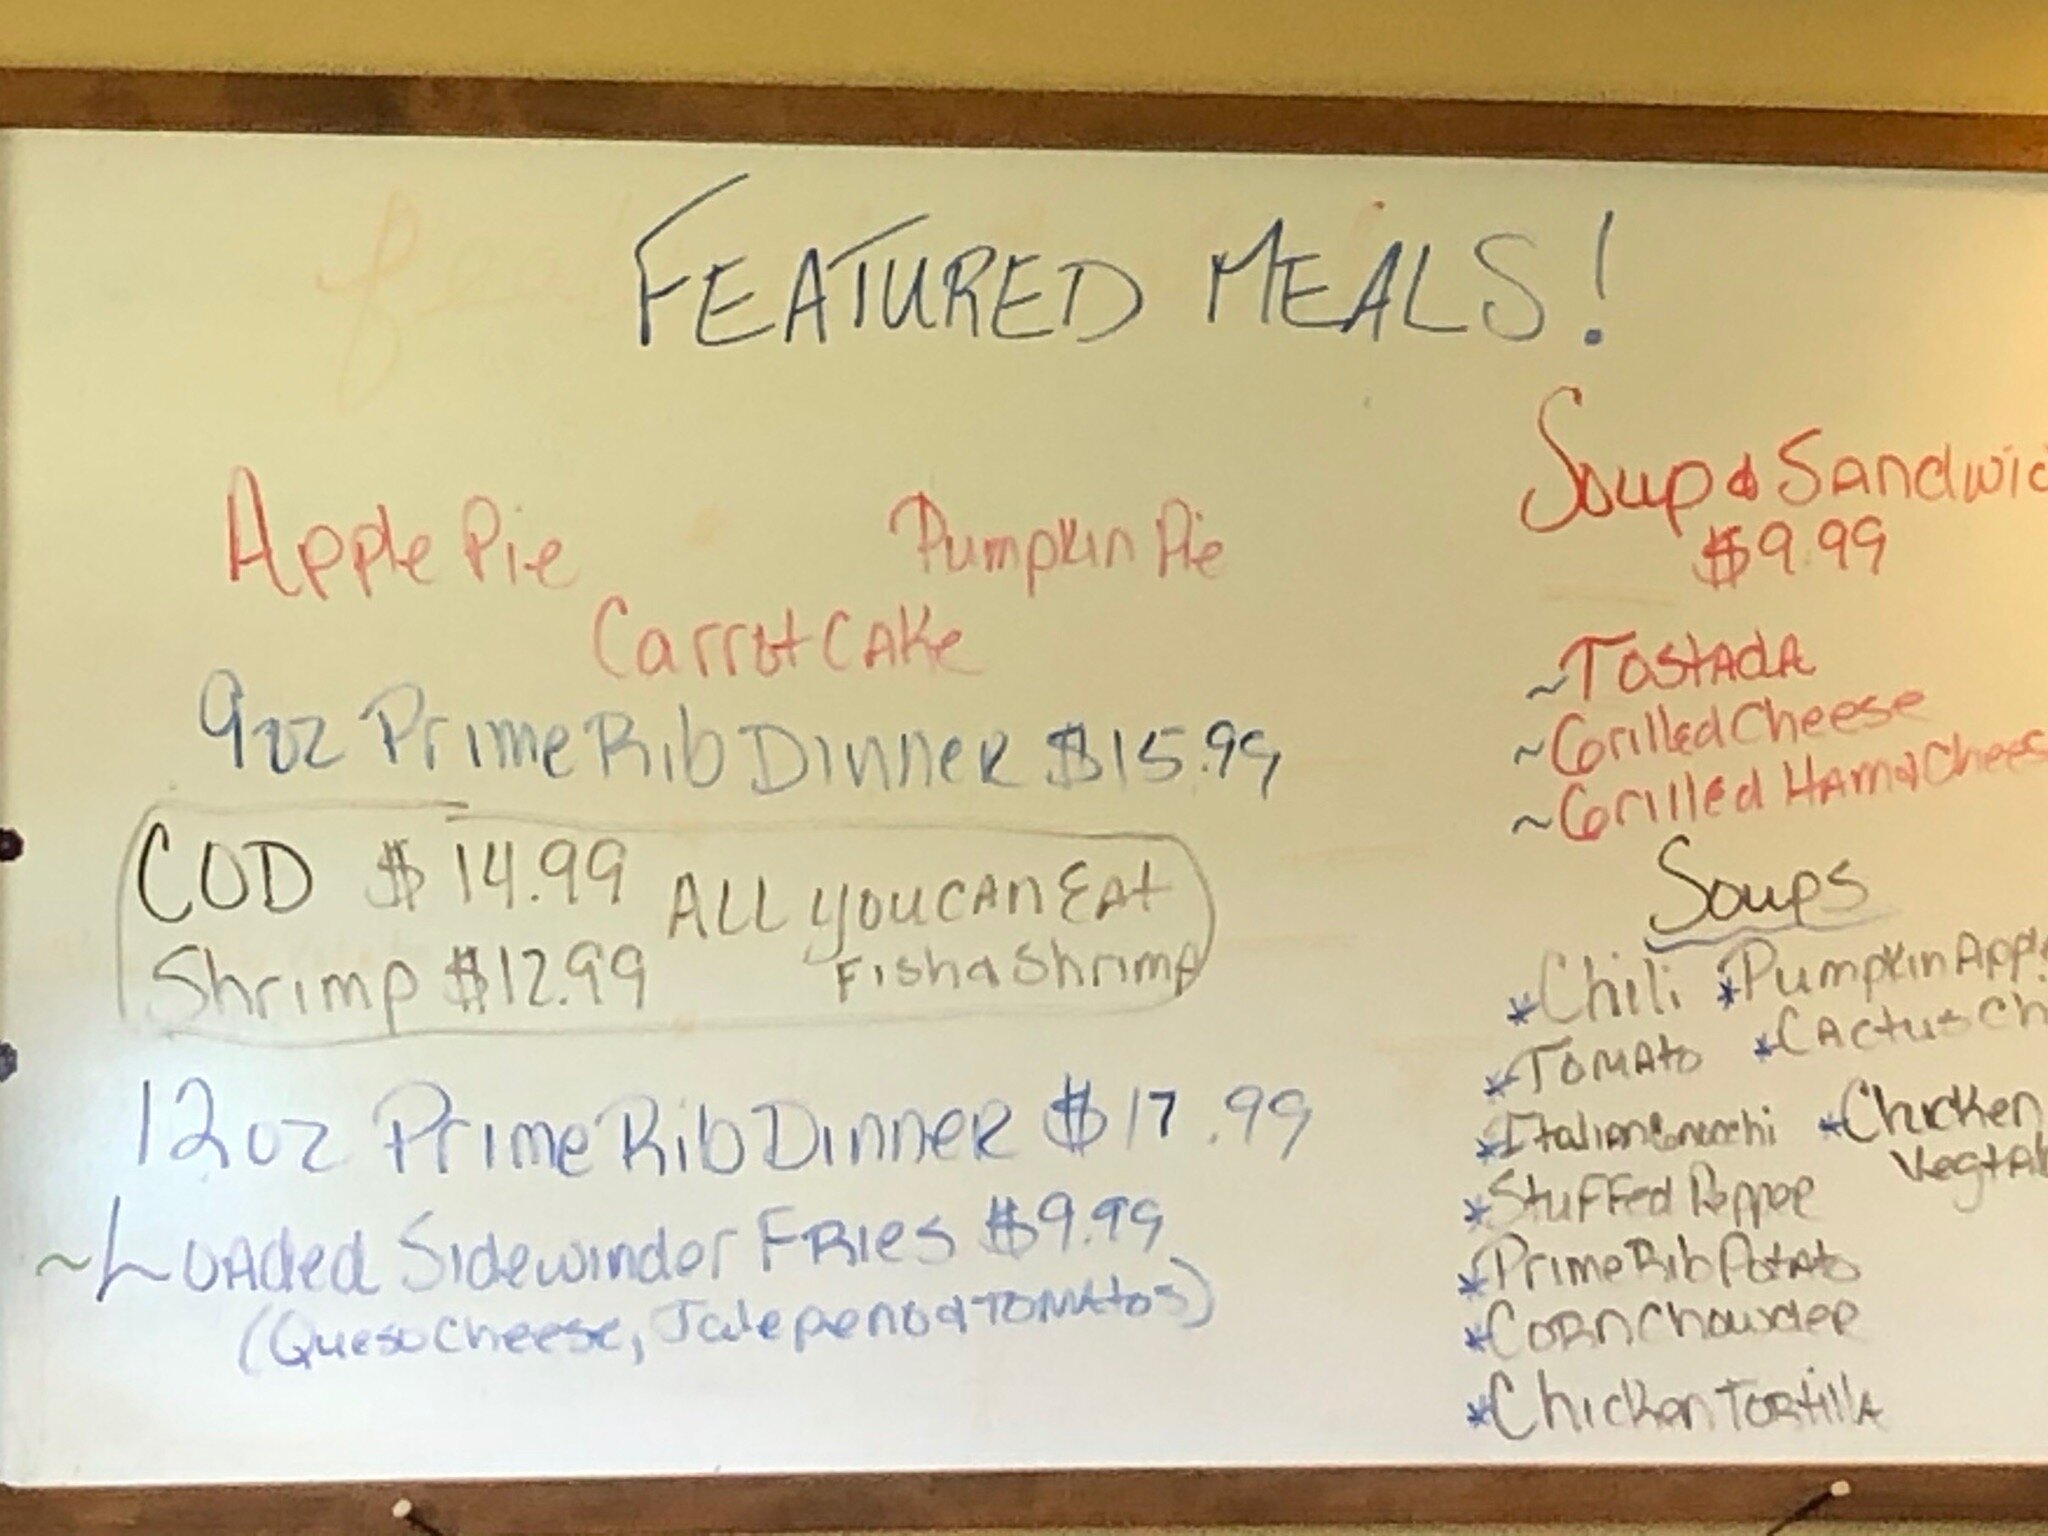 FEATURED MEALS!
Apple Pie Pumpkin Pie
Carrot Cake
9oz Prime Rib Dinner $15.99
COD $14.99 ALL you can Eat
Shrimp $12.99 Fish & Shrimp
12oz Prime Rib Dinner $17.99
~Loaded Sidewinder Fries $9.99
(Queso Cheese, Jalepeno & Tomatos)
Soup & Sandwic
$9.99
~Tostada
~Grilled Cheese
~Grilled Ham & Chees
Soups
*Chili *Pumpkin Apple
*Tomato *Cactus Ch
*Italian Gnocchi *Chicken
Vegtab
*Stuffed Pepper
*Prime Rib Potato
*Corn Chowder
*Chicken Tortilla